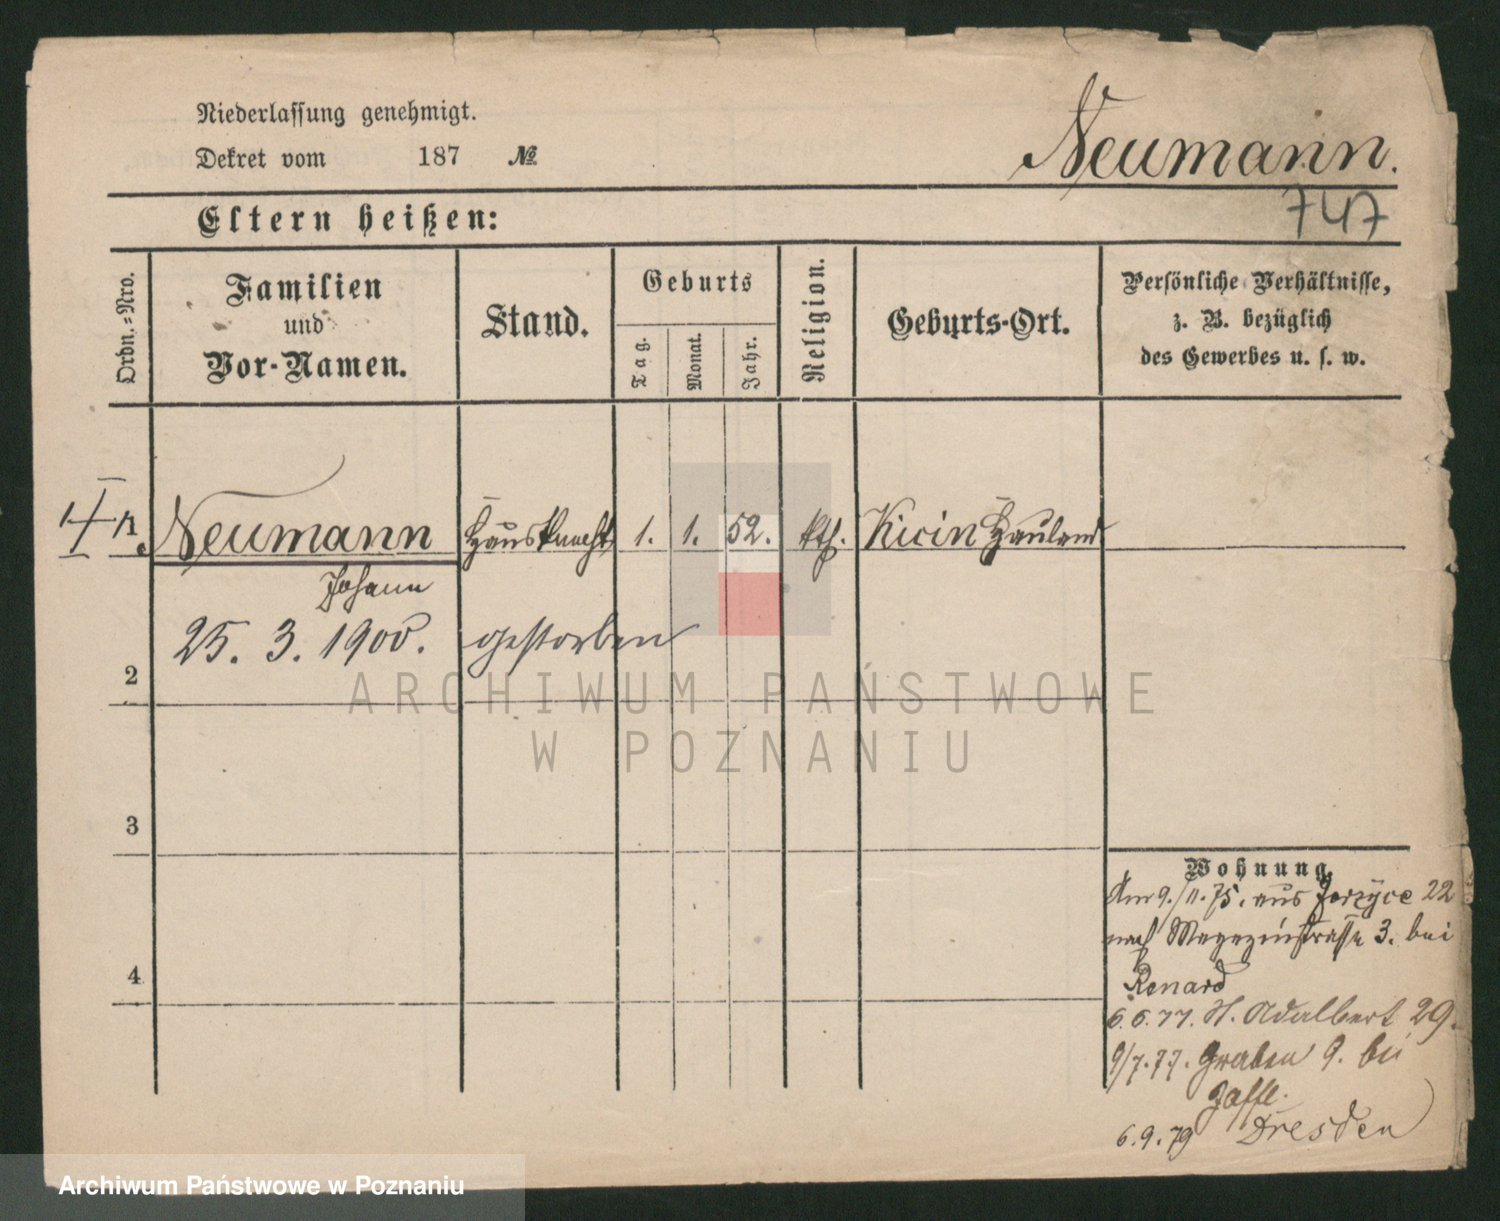 Niederlassung genehmigt.
Dekret vom 187 №
Neumann.
747
Eltern heißen:
Ordn.-Nro.
Familien
und
Vor-Namen.
Stand.
Geburts
Tag.
Monat.
Jahr.
Religion.
Geburts-Ort.
Persönliche Verhältnisse,
z. B. bezüglich
des Gewerbes u. s. w.
Neumann Hausknecht 1. 1. 52. kth. Kicin Hauland
Johann
25. 3. 1900. gestorben
2
ARCHIWUM PAŃSTWOWE
W POZNANIU
3
4
Wohnung.
Am 9./11. 75. aus Jerzyce 22
nach Magazinstrasse 3. bei
Renard
6. 6. 77. St. Adalbert 29.
9/7. 77. Graben 9. bei
6. 9. 79 Dresden
Archiwum Państwowe w Poznaniu